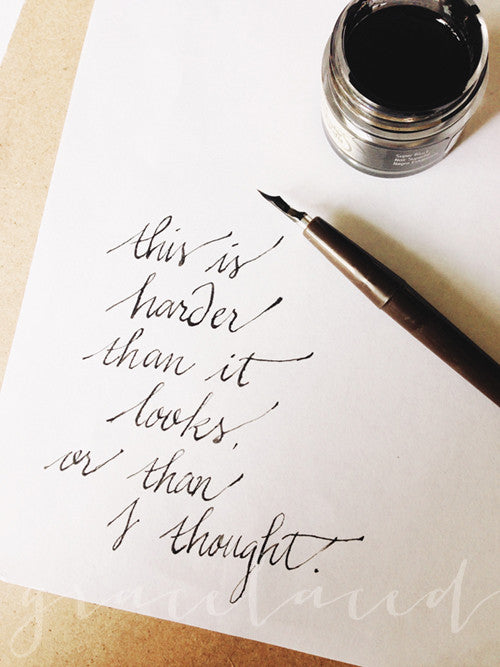 Super Black
this is
harder
than it
looks,
or than
I thought.
gracelaced